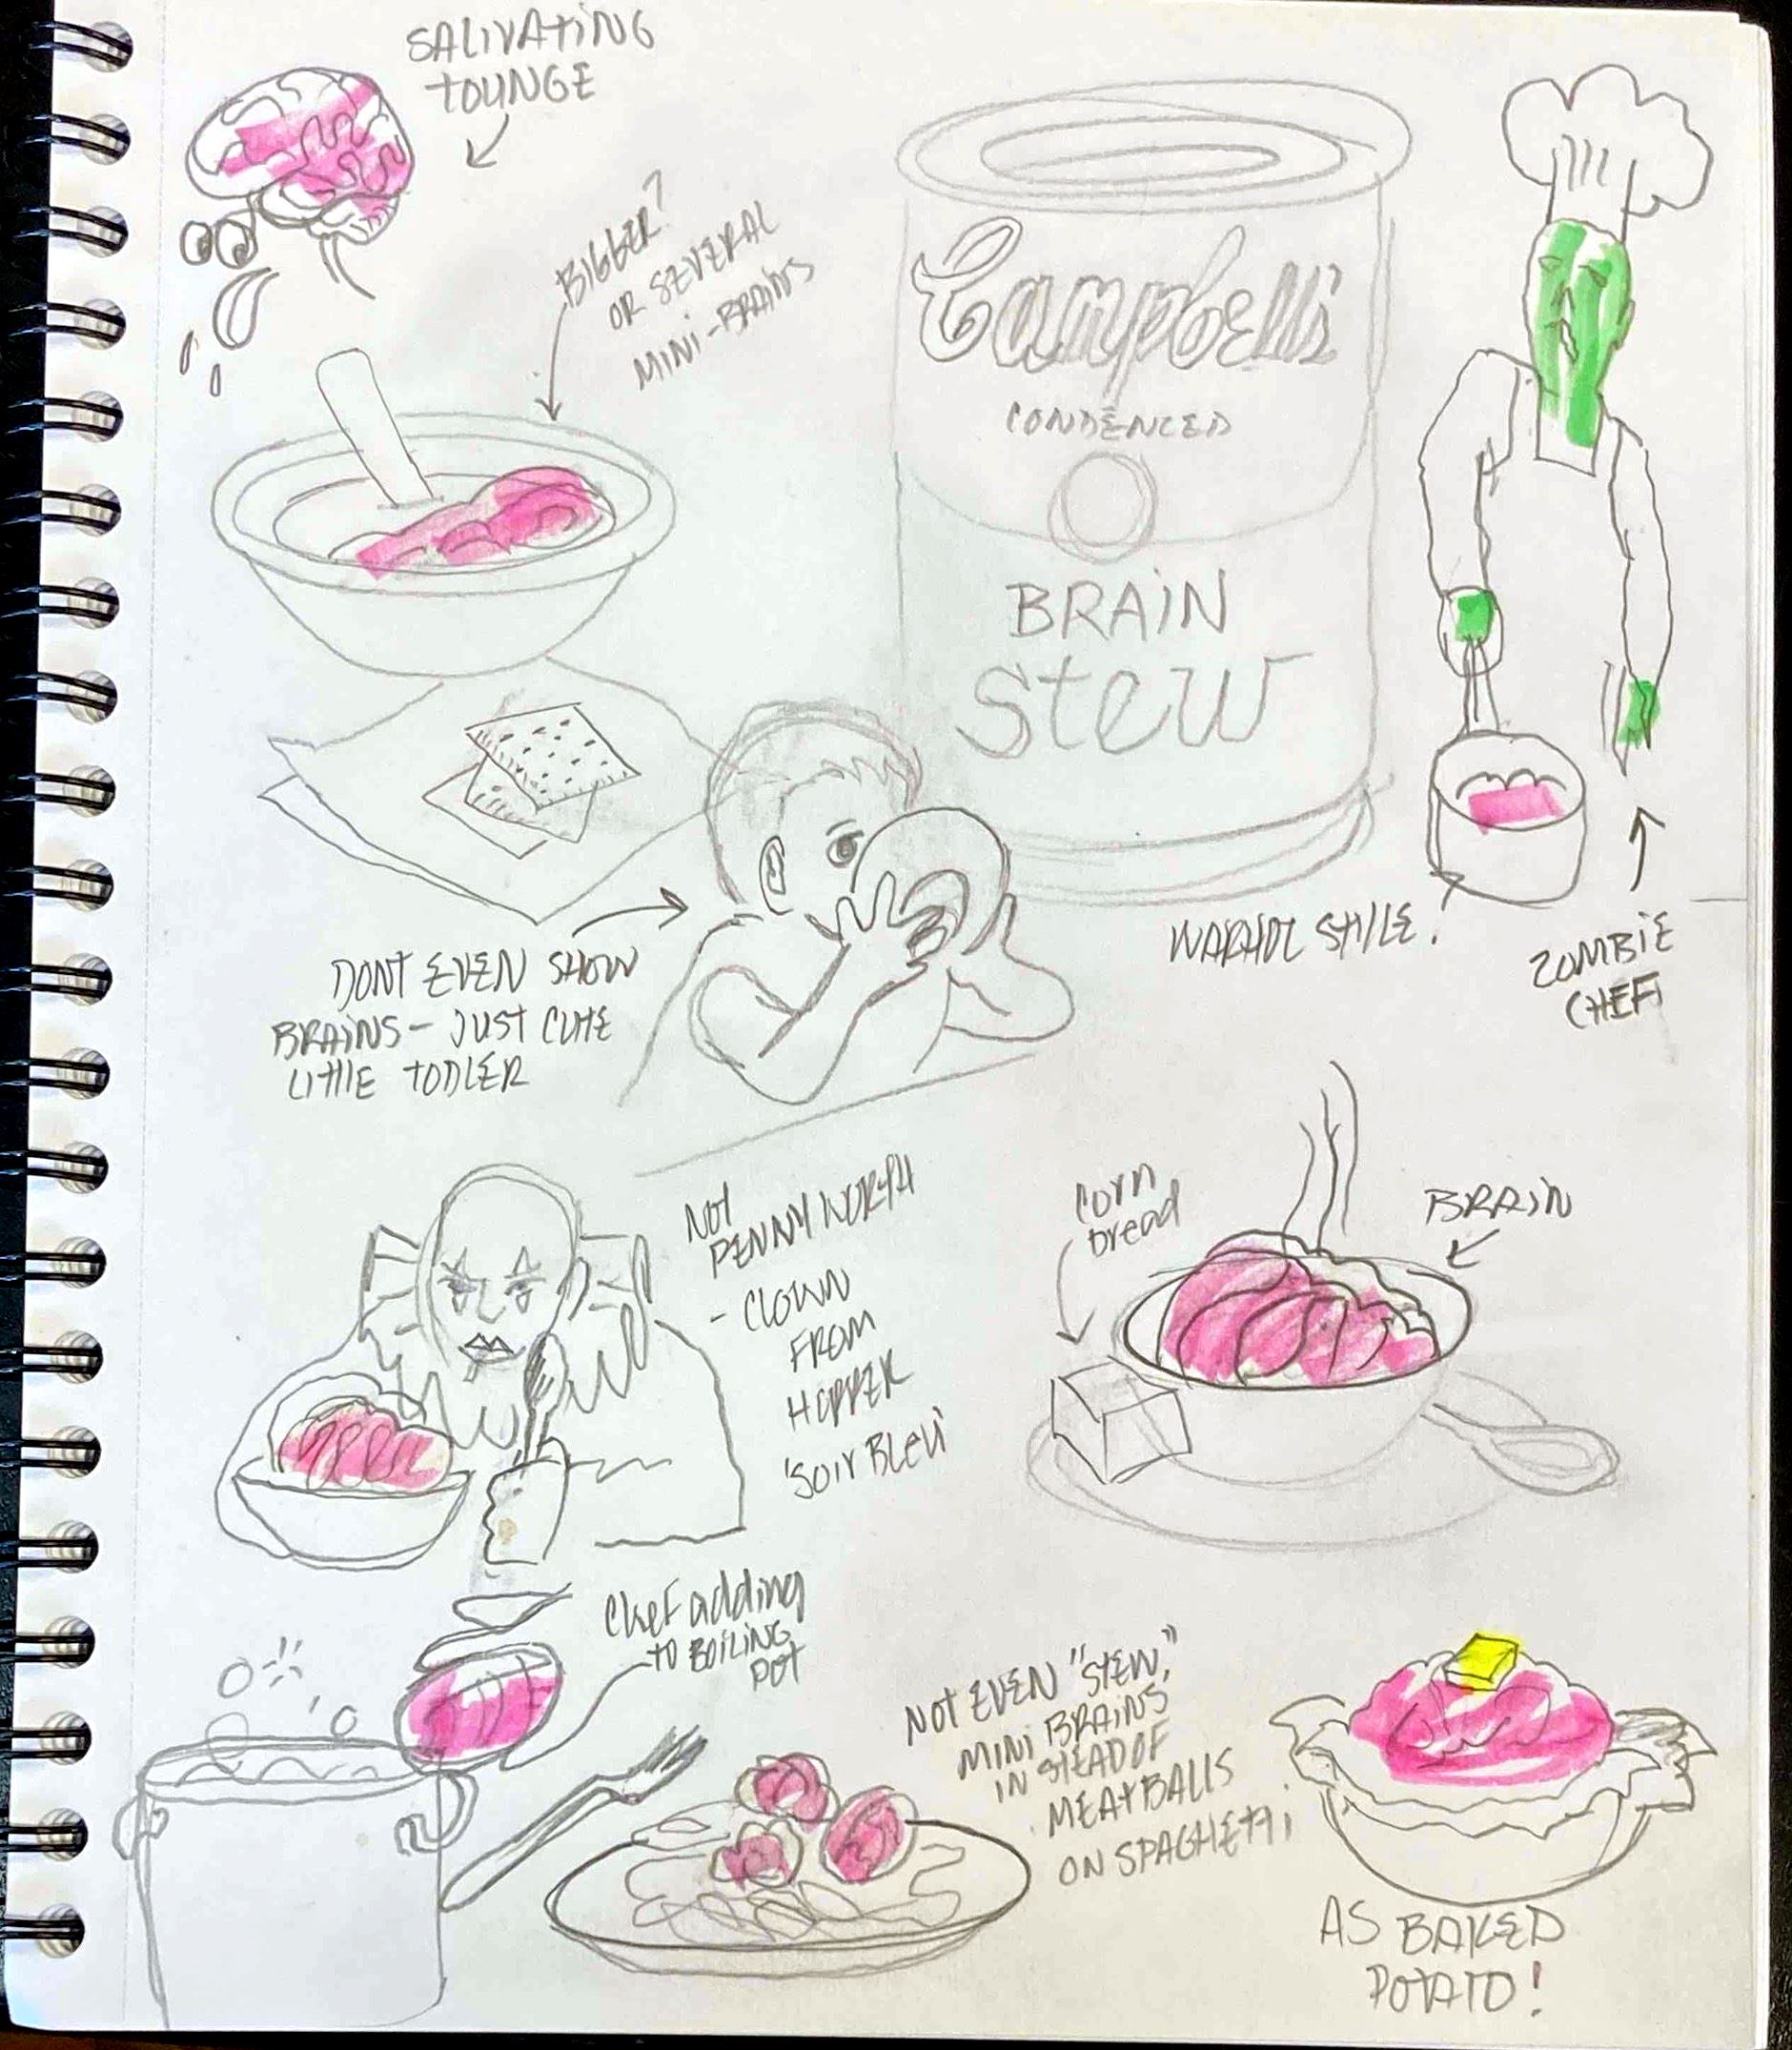 SALIVATING
TOUNGE
BIGGER?
OR SEVERAL
MINI-BRAINS
Campbell's
CONDENCED
BRAIN
Stew
WARHOL STYLE.
ZOMBIE
CHEF
DONT EVEN SHOW
BRAINS - JUST CUTE
LITTLE TODLER
NOT
PENNYWORTH
- CLOWN
FROM
HOPPER
'SOIR BLEU'
CORN
bread
BRAIN
Chef adding
TO BOILING
POT
NOT EVEN "STEW,"
MINI BRAINS
IN STEAD OF
MEATBALLS
ON SPAGHETTI
AS BAKED
POTATO!